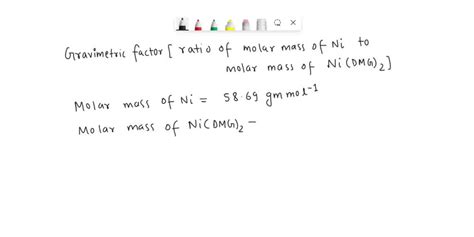 Gravimetric factor [ ratio of molar mass of Ni to
molar mass of Ni(DMG)2]
Molar mass of Ni = 58.69 gm mol-1
Molar mass of Ni(DMG)2 =